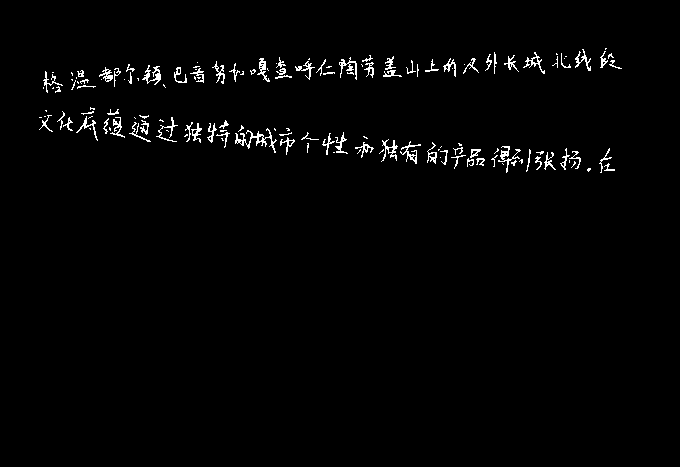 格温都尔镇、巴音努如嘎查呼仁陶劳盖山上的汉外长城北线段
文化底蕴通过独特的城市个性和独有的产品得到张扬.在